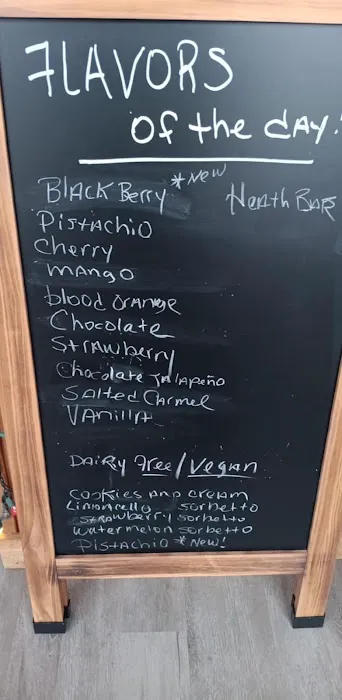 FLAVORS
of the day!
BlackBerry *New
Heath Bar
Pistachio
Cherry
mango
blood orange
Chocolate
Strawberry
Chocolate Jalapeño
Salted Carmel
Vanilla
Dairy Free/Vegan
cookies and cream
Limoncello sorbetto
strawberry sorbetto
watermelon sorbetto
Pistachio *New!